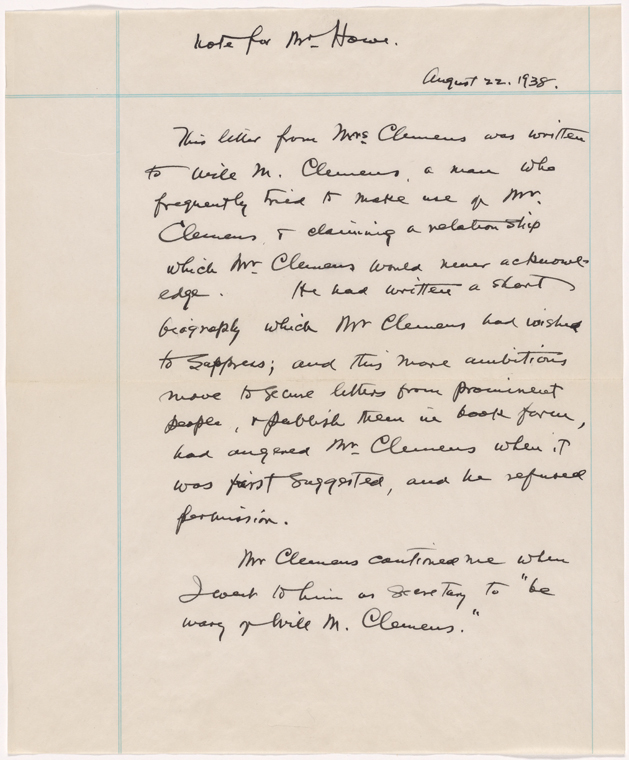 Note for Mr. Howe.
August 22. 1938.
This letter from Mrs. Clemens was written
to Will M. Clemens, a man who
frequently tried to make use of Mr.
Clemens, & claiming a relationship
which Mr. Clemens would never acknowl-
edge. He had written a short
biography which Mr Clemens had wished
to suppress; and this more ambitious
move to secure letters from prominent
people, & publish them in book form,
had angered Mr. Clemens when it
was first suggested, and he refused
permission.
Mr Clemens cautioned me when
I went to him as Secretary to "be
wary of Will M. Clemens."